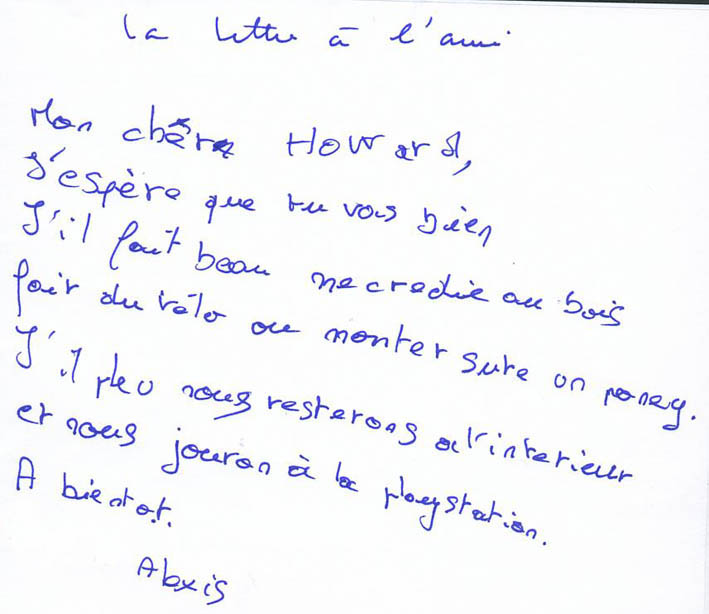 la lettre à l'ami
Mon chêre Howard,
J'espère que tu vas bien
S'il fait beau mecredie au bois
fair du vélo ou monter sure un poney.
S'il pleu nous resterons a l'interieur
et nous jouron à la playstation.
A bientot.
Alexis